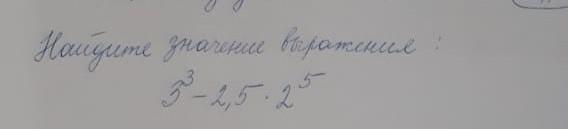 Найдите значение выражения:
3³ - 2,5 · 2⁵